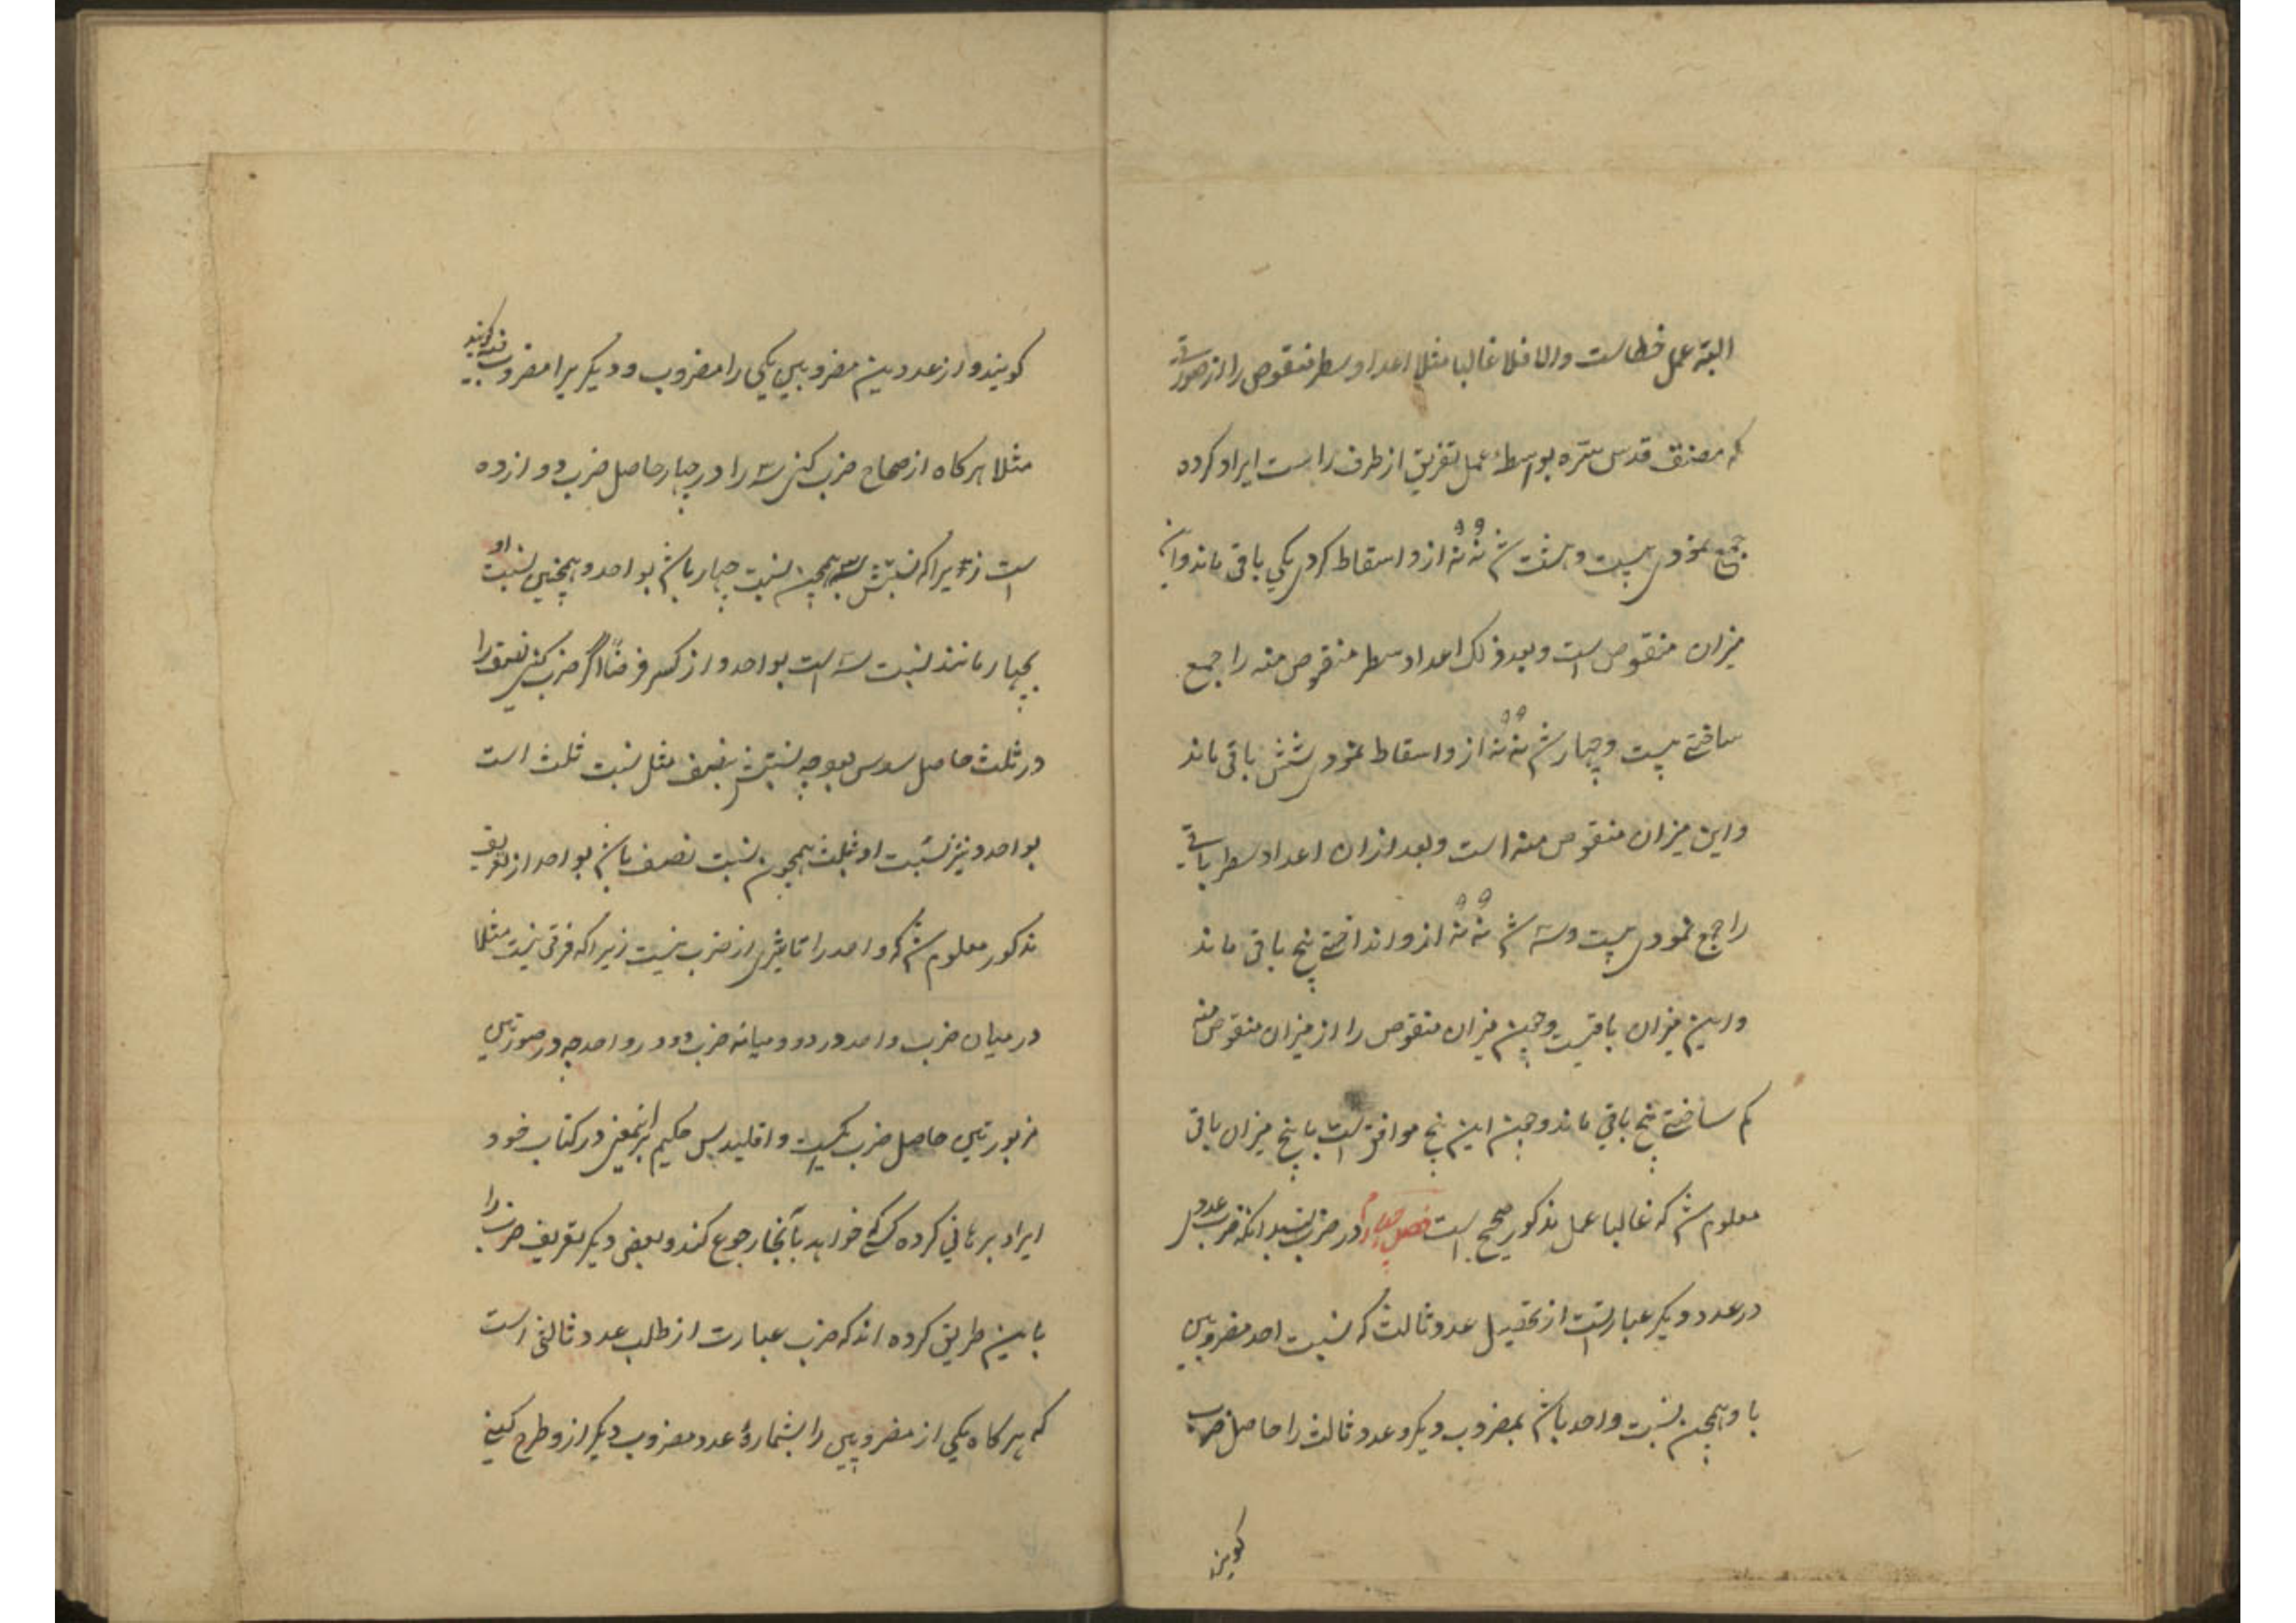 البته عمل خطاست والا فلا غالبا مثلا اعداد سطر منقوص را از صورتی
که مصنف قدس سره بواسطهٔ عمل تفریق از طرف راست ایراد کرده
جمع نمودیم بیست و هشت شد نه نه ازو اسقاط کردیم یکی باقی ماند و این
۹ ۹
میزان منقوص است و بعد ذلک اعداد سطر منقوص منه را جمع
ساختیم بیست و چهار شد نه نه ازو اسقاط نمودیم شش باقی ماند
۹ ۹
و این میزان منقوص منه است و بعد ازان اعداد سطر باقی
را جمع نمودیم بیست و سه شد نه نه ازو انداختیم پنج باقی ماند
۹ ۹
و این میزان باقیست و چون میزان منقوص را از میزان منقوص منه
کم ساختیم پنج باقی ماند و چون این پنج موافق است با پنج میزان باقی
معلوم شد که غالبا عمل مذکور صحیح است فصل چهارم در ضرب بدانکه ضرب عددی
در عدد دیگر عبارتست از تحصیل عدد ثالث که نسبت احد مضروبین
باو همچون نسبت واحد باشد بمضروب دیگر و عدد ثالث را حاصل ضرب
گویند
گویند و از عددین مضروبین یکی را مضروب و دیگریرا مضروب فیه گویند
مثلا هرگاه از صحاح ضرب کنی سه را در چهار حاصل ضرب دوازده
است زیرا که نسبتش بسه همچون نسبت چهار باشد بواحد و همچنین نسبت او
بچهار مانند نسبت سه است بواحد و از کسر فرضاً اگر ضرب کنی نصف را
در ثلث حاصل سدس بود چه نسبتش بنصف مثل نسبت ثلث است
بواحد و نیز نسبت او بثلث همچون نسبت نصف باشد بواحد از تعریف
مذکور معلوم شد که واحد را تاثیری از ضرب نیست زیرا که فرقی نیست مثلا
در میان ضرب واحد در دو و میانه ضرب دو در واحد چه در صورتین
مزبورتین حاصل ضرب یکیست و اقلیدس حکیم بر اینمعنی در کتاب خود
ایراد برهانی کرده کسی که خواهد بآنجا رجوع کند و بعضی دیگر تعریف ضرب را
باین طریق کرده اند که ضرب عبارت از طلب عدد ثالثی است
که هرگاه یکی از مضروبین را بشمارهٔ عدد مضروب دیگر ازو طرح کنی